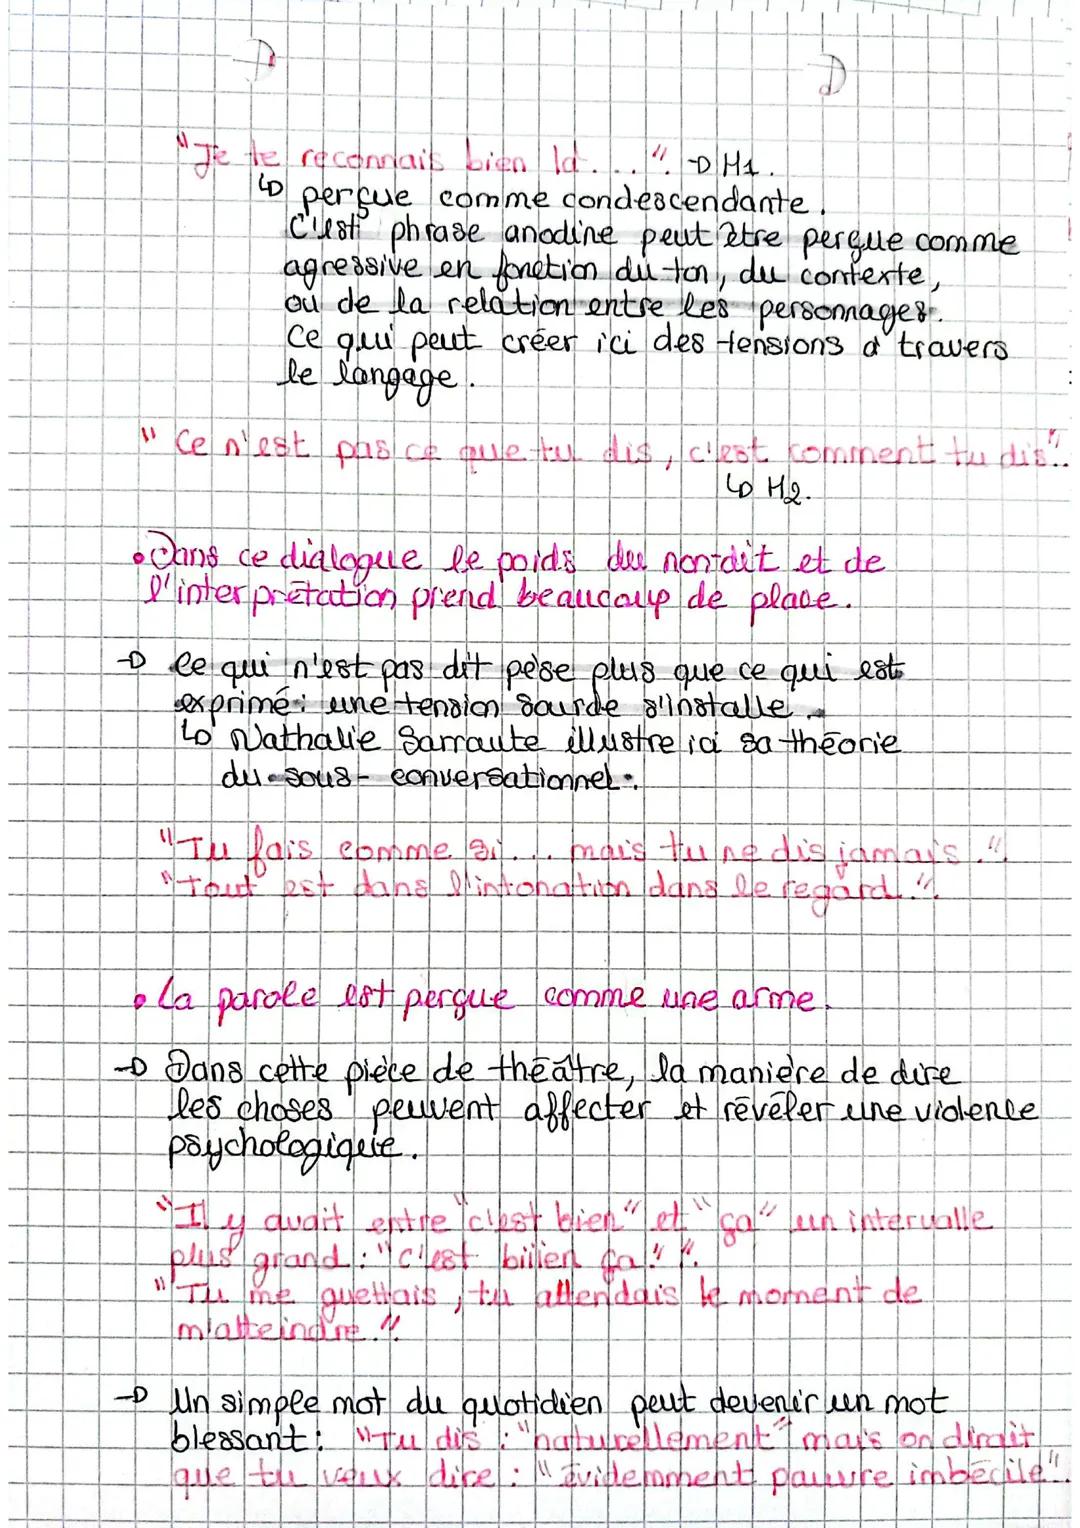 "Je te reconnais bien là...." → H1.
↳ perçue comme condescendante.
C'est phrase anodine peut être perçue comme
agressive en fonction du ton, du contexte,
ou de la relation entre les personnages.
Ce qui peut créer ici des tensions à travers
le langage.
"Ce n'est pas ce que tu dis, c'est comment tu dis"..
↳ H2.
• Dans ce dialogue le poids du non-dit et de
l'interprétation prend beaucoup de place.
→ Ce qui n'est pas dit pèse plus que ce qui est
exprimé : une tension sourde s'installe.
↳ Nathalie Sarraute illustre ici sa théorie
du sous-conversationnel.
"Tu fais comme si... mais tu ne dis jamais."
"Tout est dans l'intonation dans le regard."
• La parole est perçue comme une arme.
→ Dans cette pièce de théâtre, la manière de dire
les choses peuvent affecter et révéler une violence
psychologique.
"Il y avait entre "c'est bien" et "ça" un intervalle
plus grand : "c'est biiien ça"".
"Tu me guettais, tu attendais le moment de
m'atteindre."
→ Un simple mot du quotidien peut devenir un mot
blessant : "Tu dis : "naturellement" mais on dirait
que tu veux dire : "évidemment pauvre imbécile".